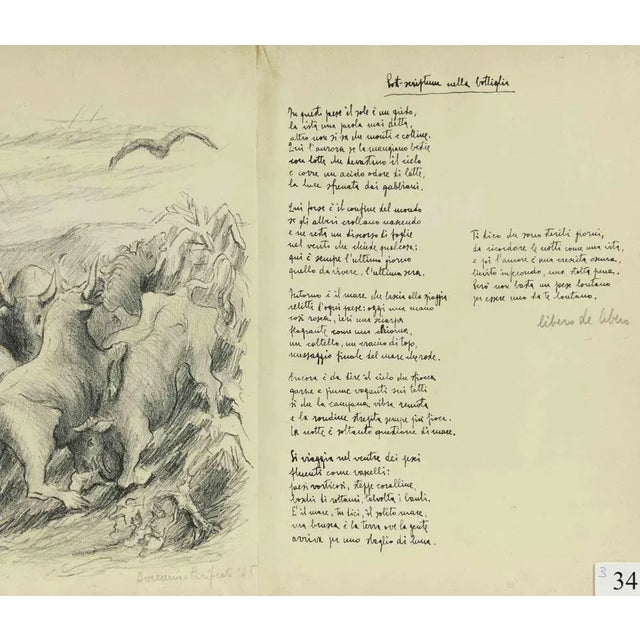 Post-scriptum nella bottiglia
In questi paesi il sole è un grido,
la vita una parola mai detta,
altro non si sa che monti e colline.
Qui l'aurora se la mangiano bestie
con lotte che devastano il cielo
e corre un acido odore di latte,
la luce sfrenata dai gabbiani.
Qui forse è il confine del mondo
se gli alberi crollano nascendo
e ne resta un discorso di foglie
nel vento che chiede qualcosa:
qui è sempre l'ultimo giorno
quello da vivere, l'ultima sera.
Intorno è il mare che lascia alla spiaggia
relitti d'ogni paese: oggi una mano
così rosea, ieri una sciarpa
fragrante come una chioma,
un coltello, un cranio di topo,
messaggio finale del mare che rode.
Ancora è da dire il cielo che sfoca
garze e piume vaganti sui tetti
si da la campana vibra remota
e la rondine strepita sempre più fioca.
La notte è soltanto questione di mare.
Si viaggia nel ventre dei pesci
fluenti come vascelli:
paesi vorticosi, steppe coralline,
boschi di rottami, talvolta i bauli.
E il mare, tu dici, il solito mare,
ma brusca è la terra ove la gente
arriva per uno sbaglio di luna.
Ti dico che sono sterili giorni,
da ricordare le notti come una vita,
e poi l'amore è una crescita oscura,
lievito infecondo, una stolta pena.
Però non basta un paese lontano
per essere uno da te lontano.
libero de libero
Domenico Purificato '65
34